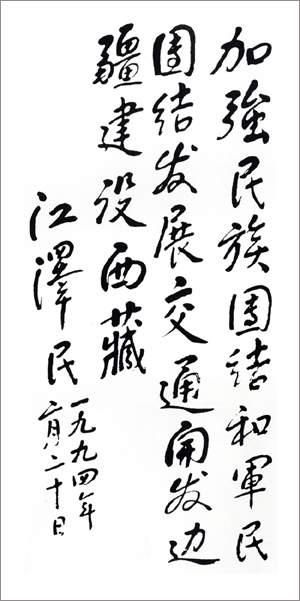 加強民族團結和軍民
團結发展交通開发边
疆建设西藏
江澤民
一九九四年
月二十日